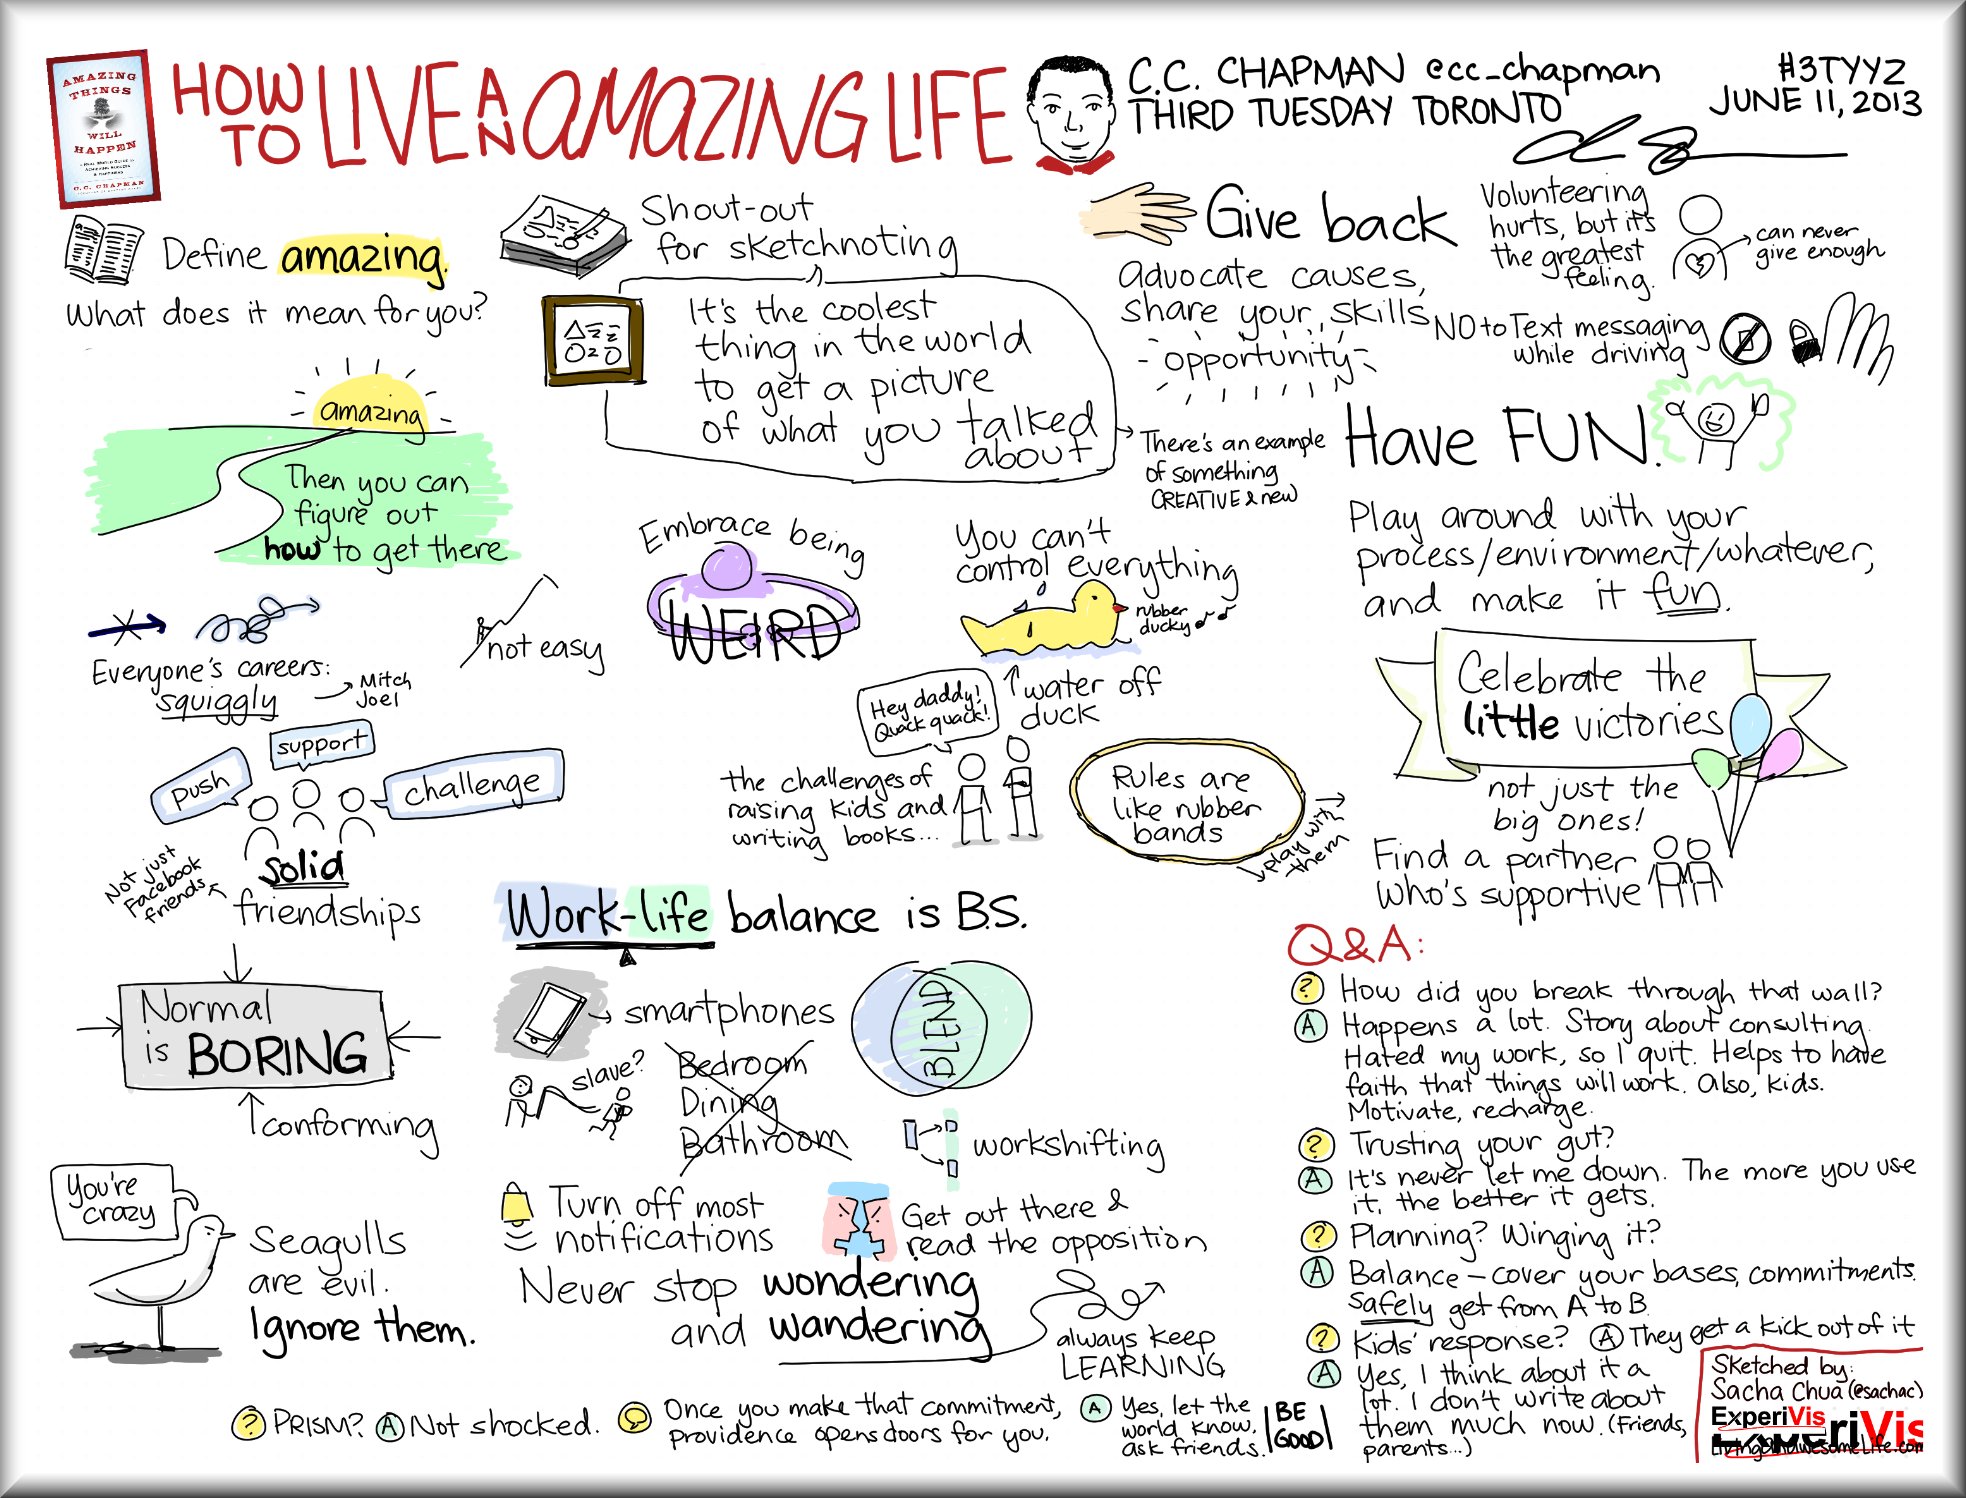 AMAZING
THINGS
WILL
HAPPEN
C.C. CHAPMAN
HOW TO LIVE AN AMAZING LIFE
C.C. CHAPMAN @cc_chapman
THIRD TUESDAY TORONTO
#3TYYZ
JUNE 11, 2013
Define amazing.
What does it mean for you?
amazing
Then you can
figure out
how to get there
Everyone's careers:
squiggly
Mitch
Joel
not easy
push
support
challenge
solid
friendships
Not just
Facebook
friends
Normal
is BORING
conforming
You're
crazy
Seagulls
are evil.
Ignore them.
Shout-out
for sketchnoting
It's the coolest
thing in the world
to get a picture
of what you talked
about
There's an example
of something
CREATIVE & new
Embrace being
WEIRD
You can't
control everything
rubber
ducky
water off
duck
Hey daddy!
Quack quack!
the challenges of
raising kids and
writing books...
Rules are
like rubber
bands
play with
them
Work-life balance is B.S.
smartphones
slave?
Bedroom
Dining
Bathroom
BLEND
workshifting
Turn off most
notifications
Get out there &
read the opposition
Never stop wondering
and wandering
always keep
LEARNING
Give back
Advocate causes,
share your skills
opportunity
Volunteering
hurts, but it's
the greatest
feeling.
can never
give enough
NO to Text messaging
while driving
Have FUN.
Play around with your
process/environment/whatever,
and make it fun.
Celebrate the
little victories
not just the
big ones!
Find a partner
who's supportive
Q&A:
? How did you break through that wall?
A Happens a lot. Story about consulting.
Hated my work, so I quit. Helps to have
faith that things will work. Also, kids.
Motivate, recharge.
? Trusting your gut?
A It's never let me down. The more you use
it, the better it gets.
? Planning? Winging it?
A Balance - cover your bases, commitments.
Safely get from A to B.
? Kids' response? A They get a kick out of it
A Yes, I think about it a
lot. I don't write about
them much now. (Friends,
parents...)
? PRISM? A Not shocked.
Once you make that commitment,
providence opens doors for you.
A Yes, let the
world know.
ask friends.
BE
GOOD
Sketched by:
Sacha Chua (@sachac)
ExperiVis
ExperiVis
LivingAnAwesomeLife.com